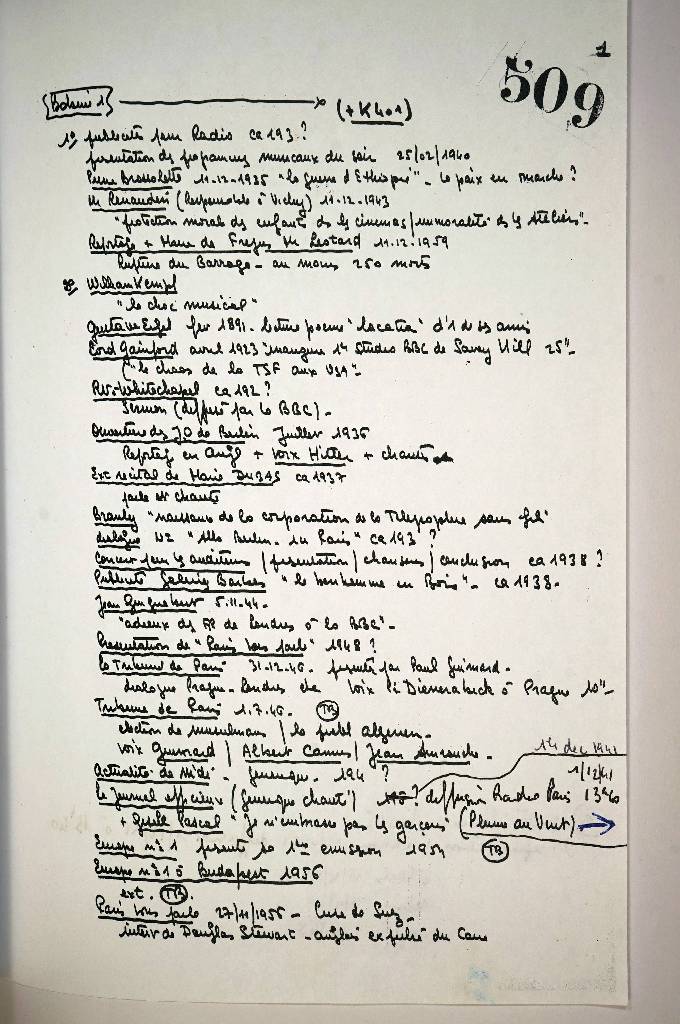 1
509
Bobine 1 (+ K401)
1° publicité pour Radio ca 193.?
présentation des programmes musicaux du soir 25/02/1940
Pierre Brossolette 11-12-1935 "la guerre d'Ethiopie" - la paix en marche ?
Mr Renaudin (Responsable à Vichy) 11-12-1943
"protection morale des enfants ds les cinemas/immoralité ds les ateliers"-
Reportage + Maire de Frejus Mr Leotard 11.12.1959
Rupture du Barrage - au moins 250 morts
2° William Kempf
"le choc musical"
Gustave Eiffel fev 1891. lecture poeme d'1 de ses amis
Lord Gainford avril 1923 inaugure 1er Studio BBC de Savoy Hill 25"-
("le chaos de la TSF aux USA"-
RV. Whitechapel ca 192 ?
Sermon (diffusé par la BBC)-
Ouverture des JO de Berlin Juillet 1936
Reportage en Angl + voix Hitler + chants
Ext recital de Marie DUBAS ca 1937
parle et chante
Branly "naissance de la corporation de la Telegraphie sans fil"
dialogue N2 "Allo Berlin. ici Paris" ca 193 ?
Concert pour les auditeurs / presentation / chansons / conclusion ca 1938 ?
Publicité Galeries Barbes "le bonhomme en Bois"- ca 1938.
Jean Guignebert 5.11.44.
"adieux des FF de Londres à la BBC"-
Presentation de "Paris vous parle" 1948 ?
la Tribune de Paris 31.12.46. presenté par Paul Guimard -
dialogue Prague - Londres etc Voix à Prague 10"-
Tribune de Paris 1.7.46. TB
election de musulmans / le probl algerien.
voix Guimard / Albert Camus / Jean Amrouche -
Actualité de Midi - generique. 194 ?
14 dec 1941
1/12/41
le Journal (generique chanté) ? diffusion Radio Paris 13h40
+ Gisele Pascal "Je n'embrasse pas les garçons" (Plume au Vent) →
Europe n°1 presente sa 1ere emission 1954 TB
Europe n°1 à Budapest 1956
ext. TB.
Paris vous parle 27/11/1956 - Crise de Suez -
interv de Douglas Stewart - anglais expulsé du Caire